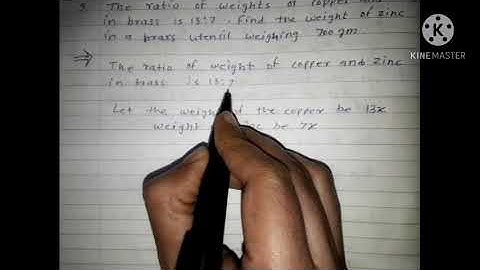 3. The ratio of weights of copper and
in brass is 13:7. Find the weight of zinc
in a brass utensil weighing 700 gm.
⇒ The ratio of weight of copper and zinc
in brass is 13:7
Let the weight of the copper be 13x
weight be 7x
K
KINEMASTER